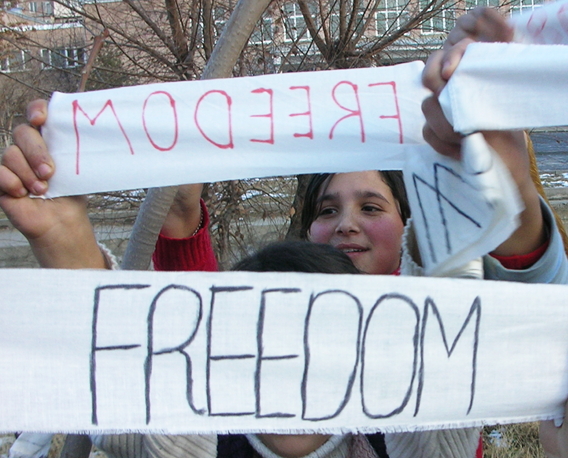 FREEDOM
FREEDOM